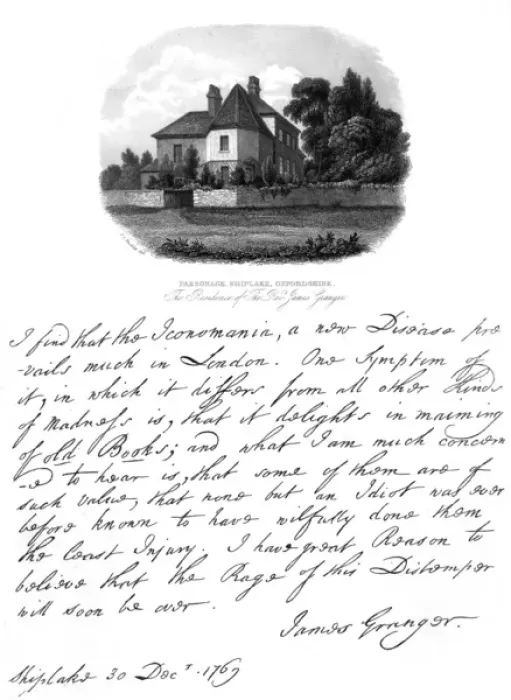 PARSONAGE, SHIPLAKE, OXFORDSHIRE.
The Residence of The Revd. James Granger
I find that the Iconomania, a new Disease pre
-vails much in London. One Symptom of
it, in which it differs from all other Kinds
of Madness is, that it delights in maiming
of old Books; and what I am much concern
-ed to hear is, that some of them are of
such value, that none but an Idiot was ever
before known to have wilfully done them
the least Injury. I have great Reason to
believe that the Rage of this Distemper
will soon be over.
James Granger.
Shiplake 30 Decr. 1769